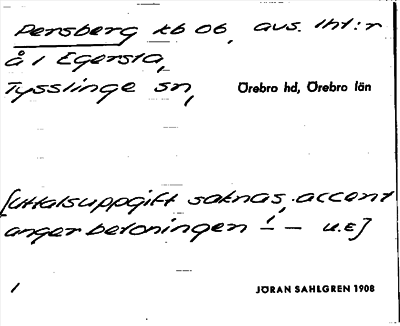 Persberg kb 06, avs. Iht:r
å i Egersta,
Tysslinge sn, Örebro hd, Örebro län
[Uttalsuppgift saknas, accent
anger betoningen ⏑́ — u.E]
1 JÖRAN SAHLGREN 1908